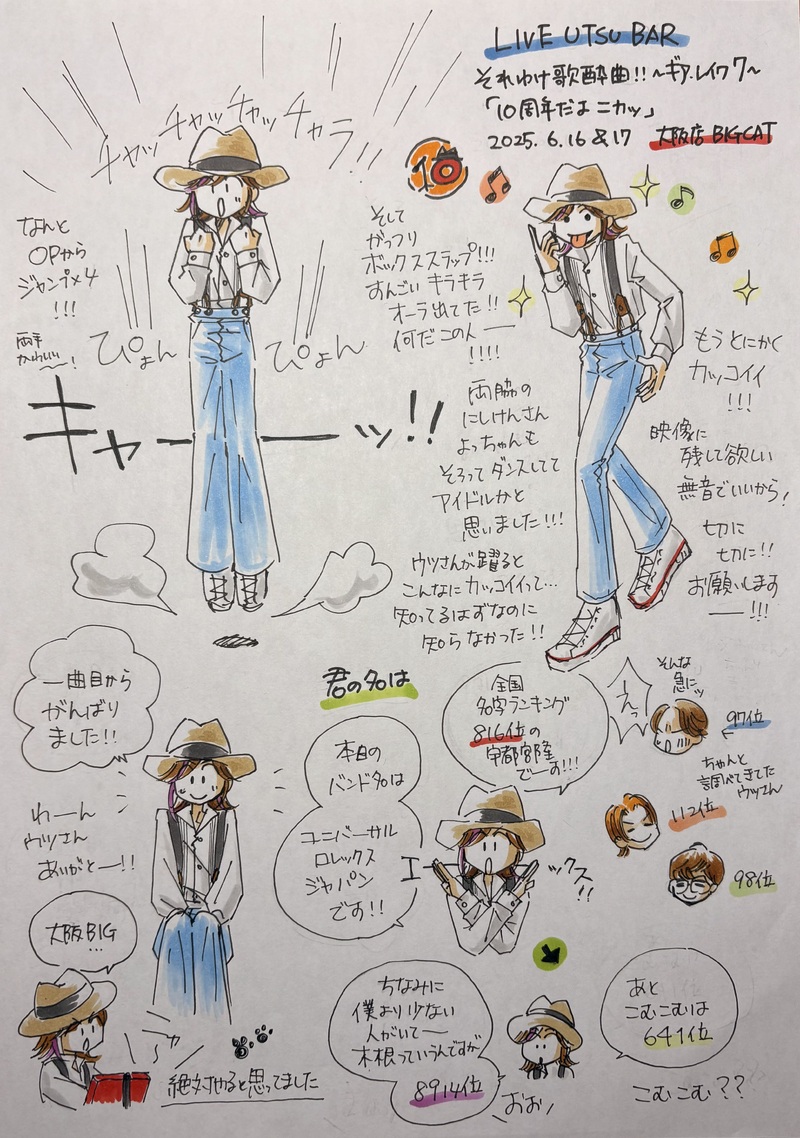 LIVE UTSU BAR
それゆけ歌酔曲!!～ギア・レイワ7～
「10周年だよ ニカッ」
2025. 6.16 &17 大阪店 BIGCAT
チャッ チャッ チャッ チャラ!!
10
なんと
OPから
ジャンプ×4
!!!
両手
かわいい
～!
ぴょん
ぴょん
キャーーッ!!
そして
がっつり
ボックスステップ!!!
すんごい キラキラ
オーラ出てた!!
何だこの人ー
!!!!
両脇の
にしけんさん
よっちゃんも
そろってダンスしてて
アイドルかと
思いました!!!
ウツさんが躍ると
こんなにカッコイイって…
知ってるはずなのに
知らなかった!!
もう とにかく
カッコイイ
!!!
映像に
残して欲しい
無音でいいから!
切に
切に!!
お願いします
ー!!!
一曲目から
がんばり
ました!!
わーん
ウツさん
ありがとー!!
大阪BIG
…
ニャ
絶対やると思ってました
君の名は
本日の
バンド名は
ユニバーサル
ロレックス
ジャパン
です!!
全国
名字ランキング
816位の
宇都宮隆
でーす!!!
エ
ックス
!!
えっ
そんな
急にッ
97位
ちゃんと
調べてきてた
ウツさん
112位
98位
ちなみに
僕より少ない
人がいてー
木根っていうんですが
8914位
おお!
あと
こむこむは
641位
こむこむ??